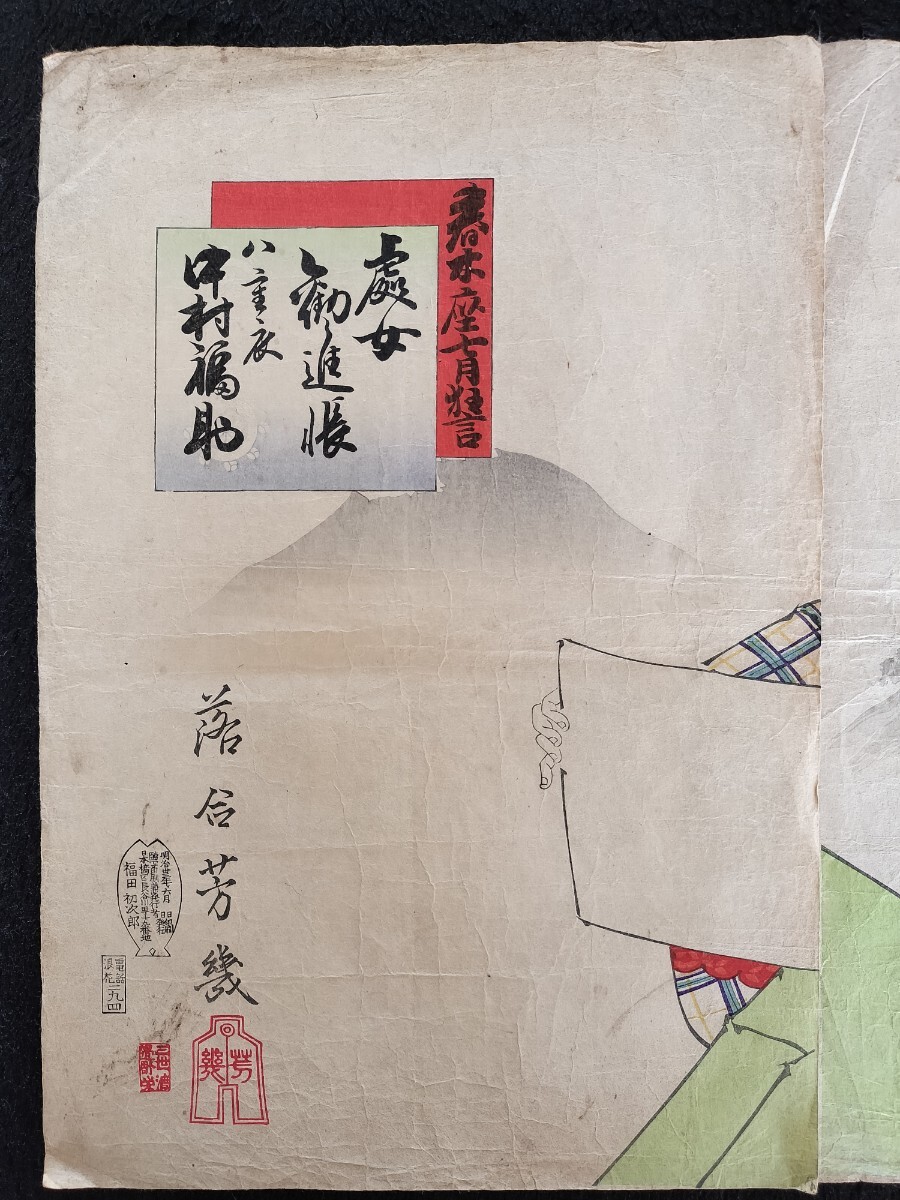 春木座七月狂言
處女
勧進帳
八重衣
中村福助
落合芳幾
福田初次郎
電話
浪花二九四
芳幾